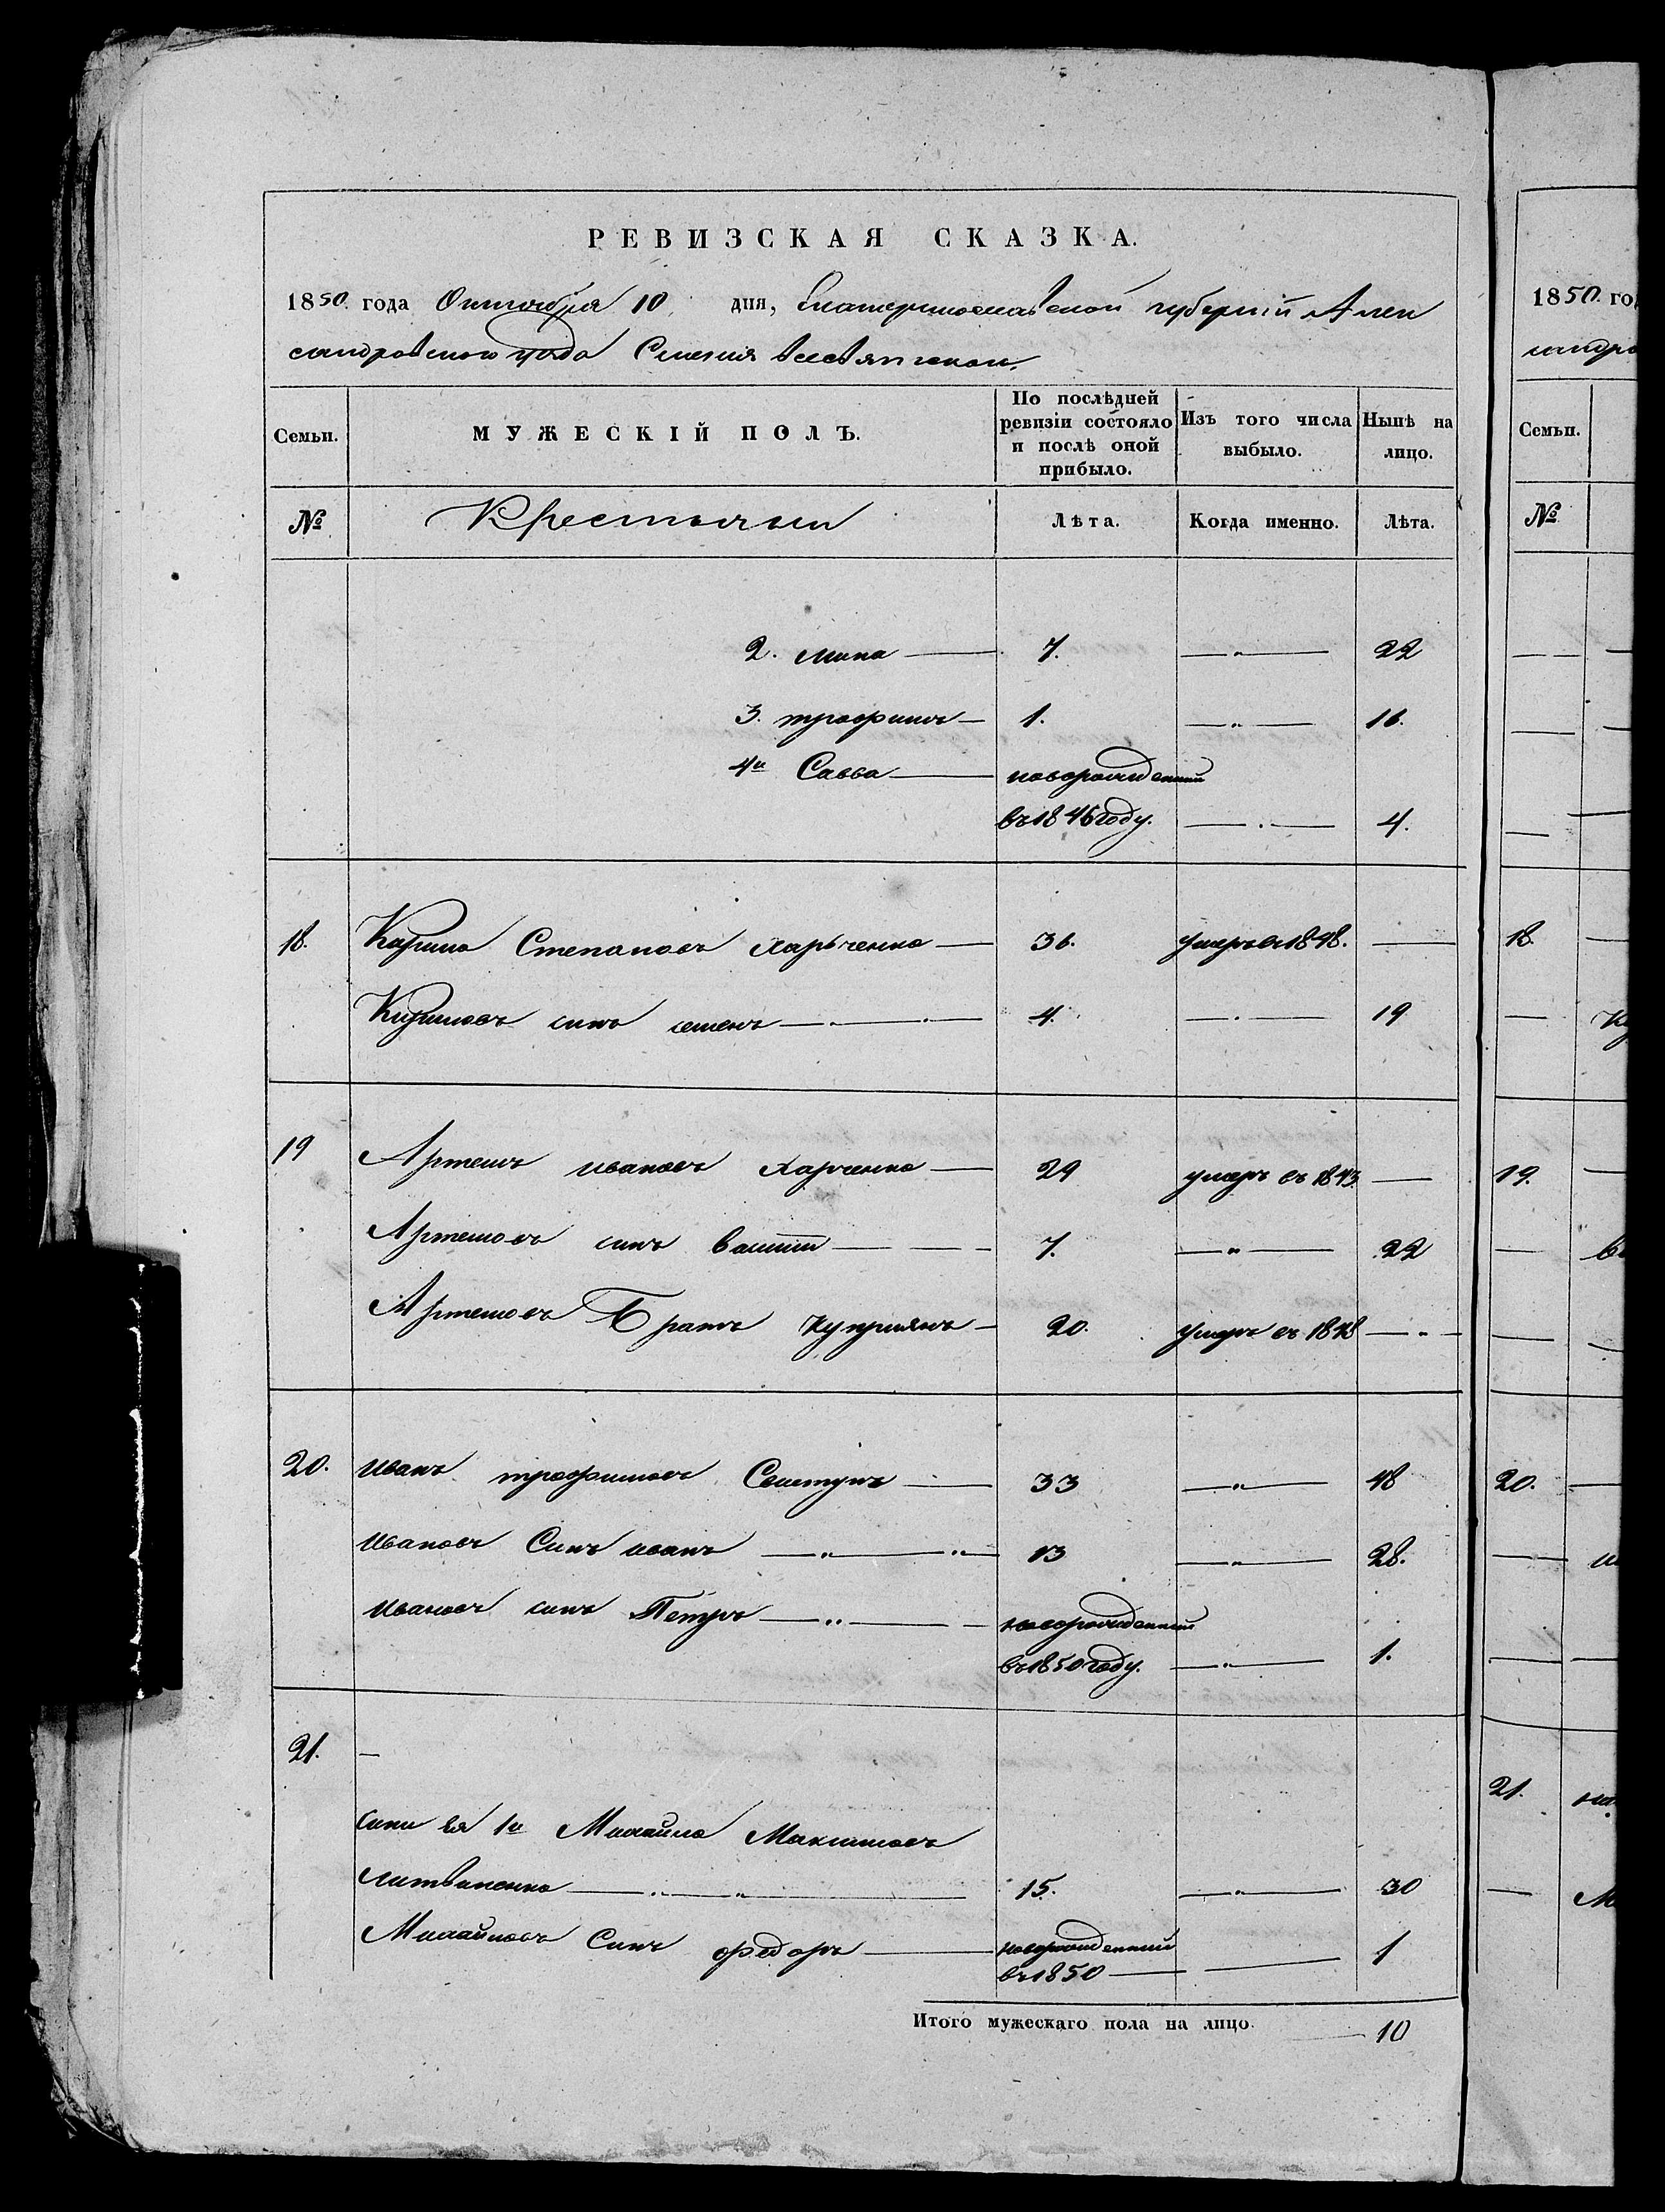 РЕВИЗСКАЯ СКАЗКА.
1850 года Октября 10 дня, Екатеринославской губернии Алек
сандровского уезда Селения всесвятскои.
Семьи. МУЖЕСКІЙ ПОЛЪ. По послѣдней ревизіи состояло и послѣ оной прибыло. Изъ того числа выбыло. Нынѣ на лицо.
№ Крестьяни Лѣта. Когда именно. Лѣта.
2. мина — 7. — " — 22
3. трофимъ — 1. — " — 16.
4й Савва — новорожденний
въ 1846 году. — " — 4.
18. Кирило Степановъ Харьченко — 36. умеръ въ 1848. —
Кириловъ синъ семенъ — 4. — " — 19
19 Артемъ ивановъ Харченко — 29 умеръ въ 1843 —
Артемовъ синъ василий — 7. — " — 22
Артемовъ Братъ Куприянъ — 20. умеръ въ 1848 — " —
20. иванъ трофимовъ Свистунъ — 33 — " — 48
ивановъ Синъ иванъ — " — " — 13 — " — 28.
ивановъ синъ Петръ — " — новорожденний
въ 1850 году. — " — 1.
21. —
сини ея 1й Михайло Максимовъ
литвиненко — " — " — 15. — " — 30
Михайловъ Синъ федоръ — новорожденний
въ 1850 — — 1
Итого мужескаго пола на лицо. — 10
1850. го
сандро
Семьи.
№
18.
19.
20.
21.